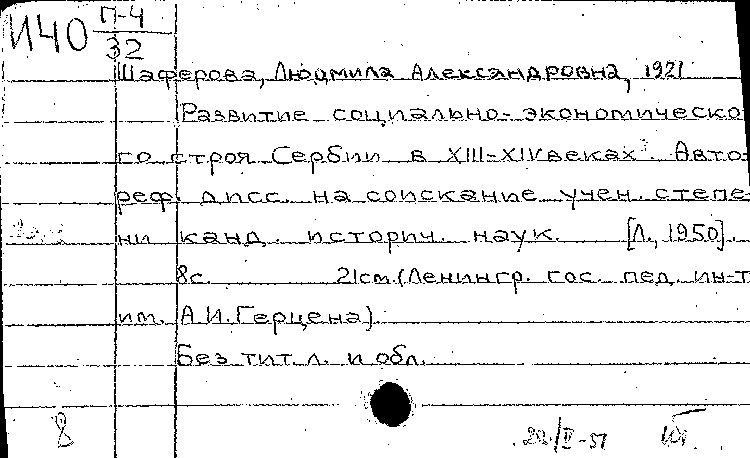 И40 П-4
32
Шаферова, Людмила Александровна, 1921
Развитие социально-экономическо-
го строя Сербии в XIII-XIV веках. Авто-
реф. дисс. на соискание учен. степе-
ни канд. историч. наук. [Л., 1950].
8с. 21см. (Ленингр. гос. пед. ин-т
им. А.И. Герцена)
Без тит. л. и обл.
8